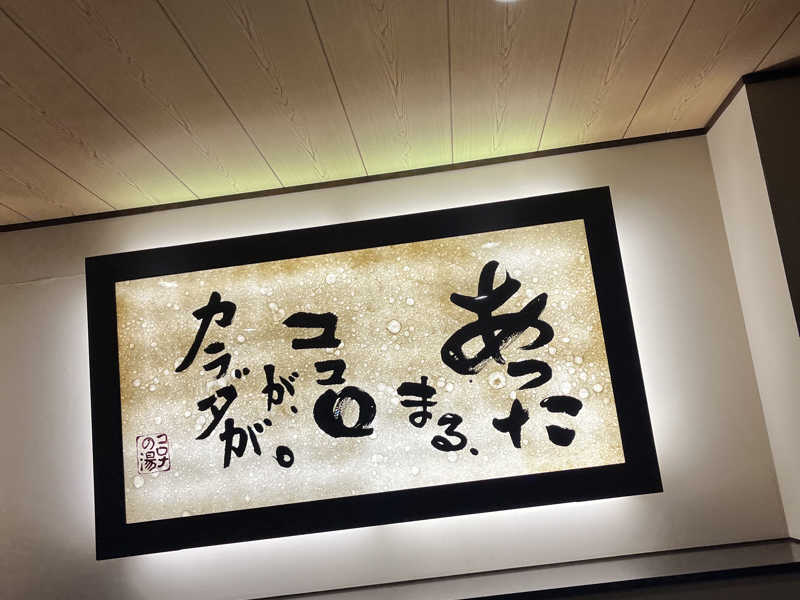 あったまる、
ココロが、
カラダが。
コロナの湯